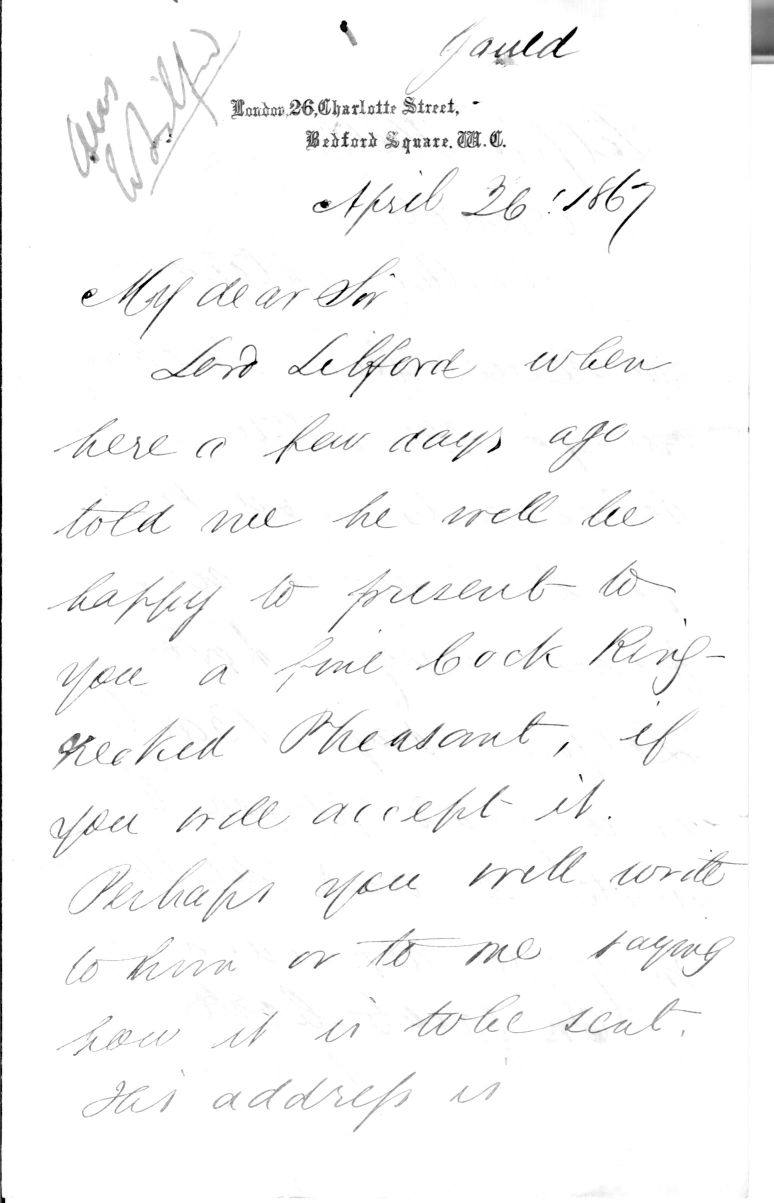 Gould
Ans
Lilford
London, 26, Charlotte Street,
Bedford Square. W.C.
April 26! 1867
My dear Sir
Lord Lilford when
here a few days ago
told me he will be
happy to present to
you a fine Cock Ring-
necked Pheasant, if
you will accept it.
Perhaps you will write
to him or to me saying
how it is to be sent.
His address is